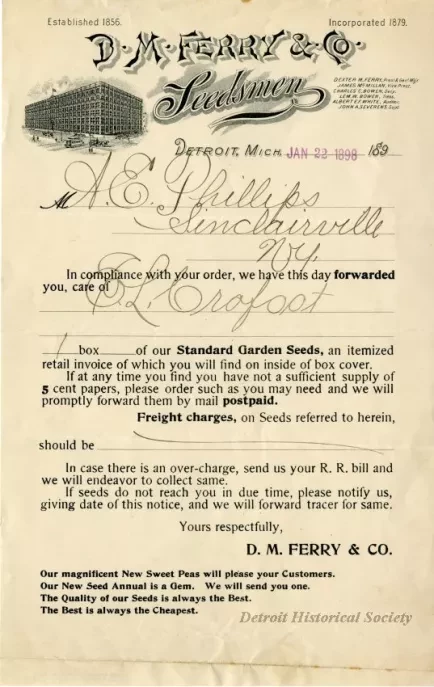 Established 1856.
Incorporated 1879.
D. M. FERRY & CO.
Seedsmen
DEXTER M. FERRY, Pres't & Gen'l Mgr.
JAMES McMILLAN, Vice Prest.
CHARLES C. BOWEN, Secy.
LEM W. BOWEN, Treas.
ALBERT E. F. WHITE,
JOHN A. SEVERENS, Supt.
DETROIT, MICH. JAN 22 1898 189
M A. E. Phillips
Sinclairville
N.Y.
In compliance with your order, we have this day forwarded
you, care of E. L.
1 box of our Standard Garden Seeds, an itemized
retail invoice of which you will find on inside of box cover.
If at any time you find you have not a sufficient supply of
5 cent papers, please order such as you may need and we will
promptly forward them by mail postpaid.
Freight charges, on Seeds referred to herein,
should be
In case there is an over-charge, send us your R. R. bill and
we will endeavor to collect same.
If seeds do not reach you in due time, please notify us,
giving date of this notice, and we will forward tracer for same.
Yours respectfully,
D. M. FERRY & CO.
Our magnificent New Sweet Peas will please your Customers.
Our New Seed Annual is a Gem. We will send you one.
The Quality of our Seeds is always the Best.
The Best is always the Cheapest.
Detroit Historical Society